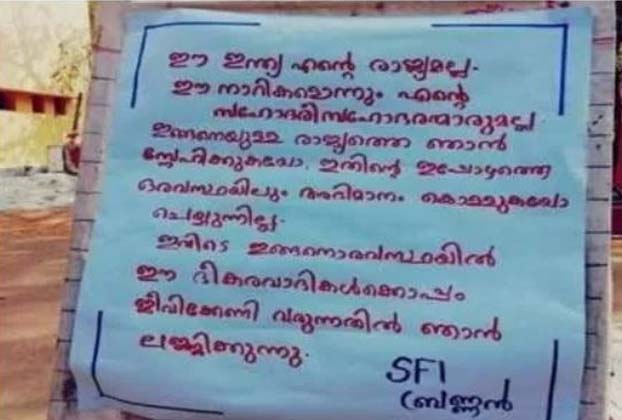 ഈ ഇന്ത്യ എന്റെ രാജ്യമല്ല.
ഈ നാറികളൊന്നും എന്റെ
സഹോദരീസഹോദരന്മാരുമല്ല
ഇങ്ങനെയുള്ള രാജ്യത്തെ ഞാൻ
സ്നേഹിക്കുകയോ, ഇതിന്റെ ഇപ്പോഴത്തെ
ഒരവസ്ഥയിലും അഭിമാനം കൊള്ളുകയോ
ചെയ്യുന്നില്ല.
ഇവിടെ ഇങ്ങനൊരവസ്ഥയിൽ
ഈ ഭീകരവാദികൾക്കൊപ്പം
ജീവിക്കേണി വരുന്നതിൽ ഞാൻ
ലജ്ജിക്കുന്നു.
SFI
(ബണ്ണൻ